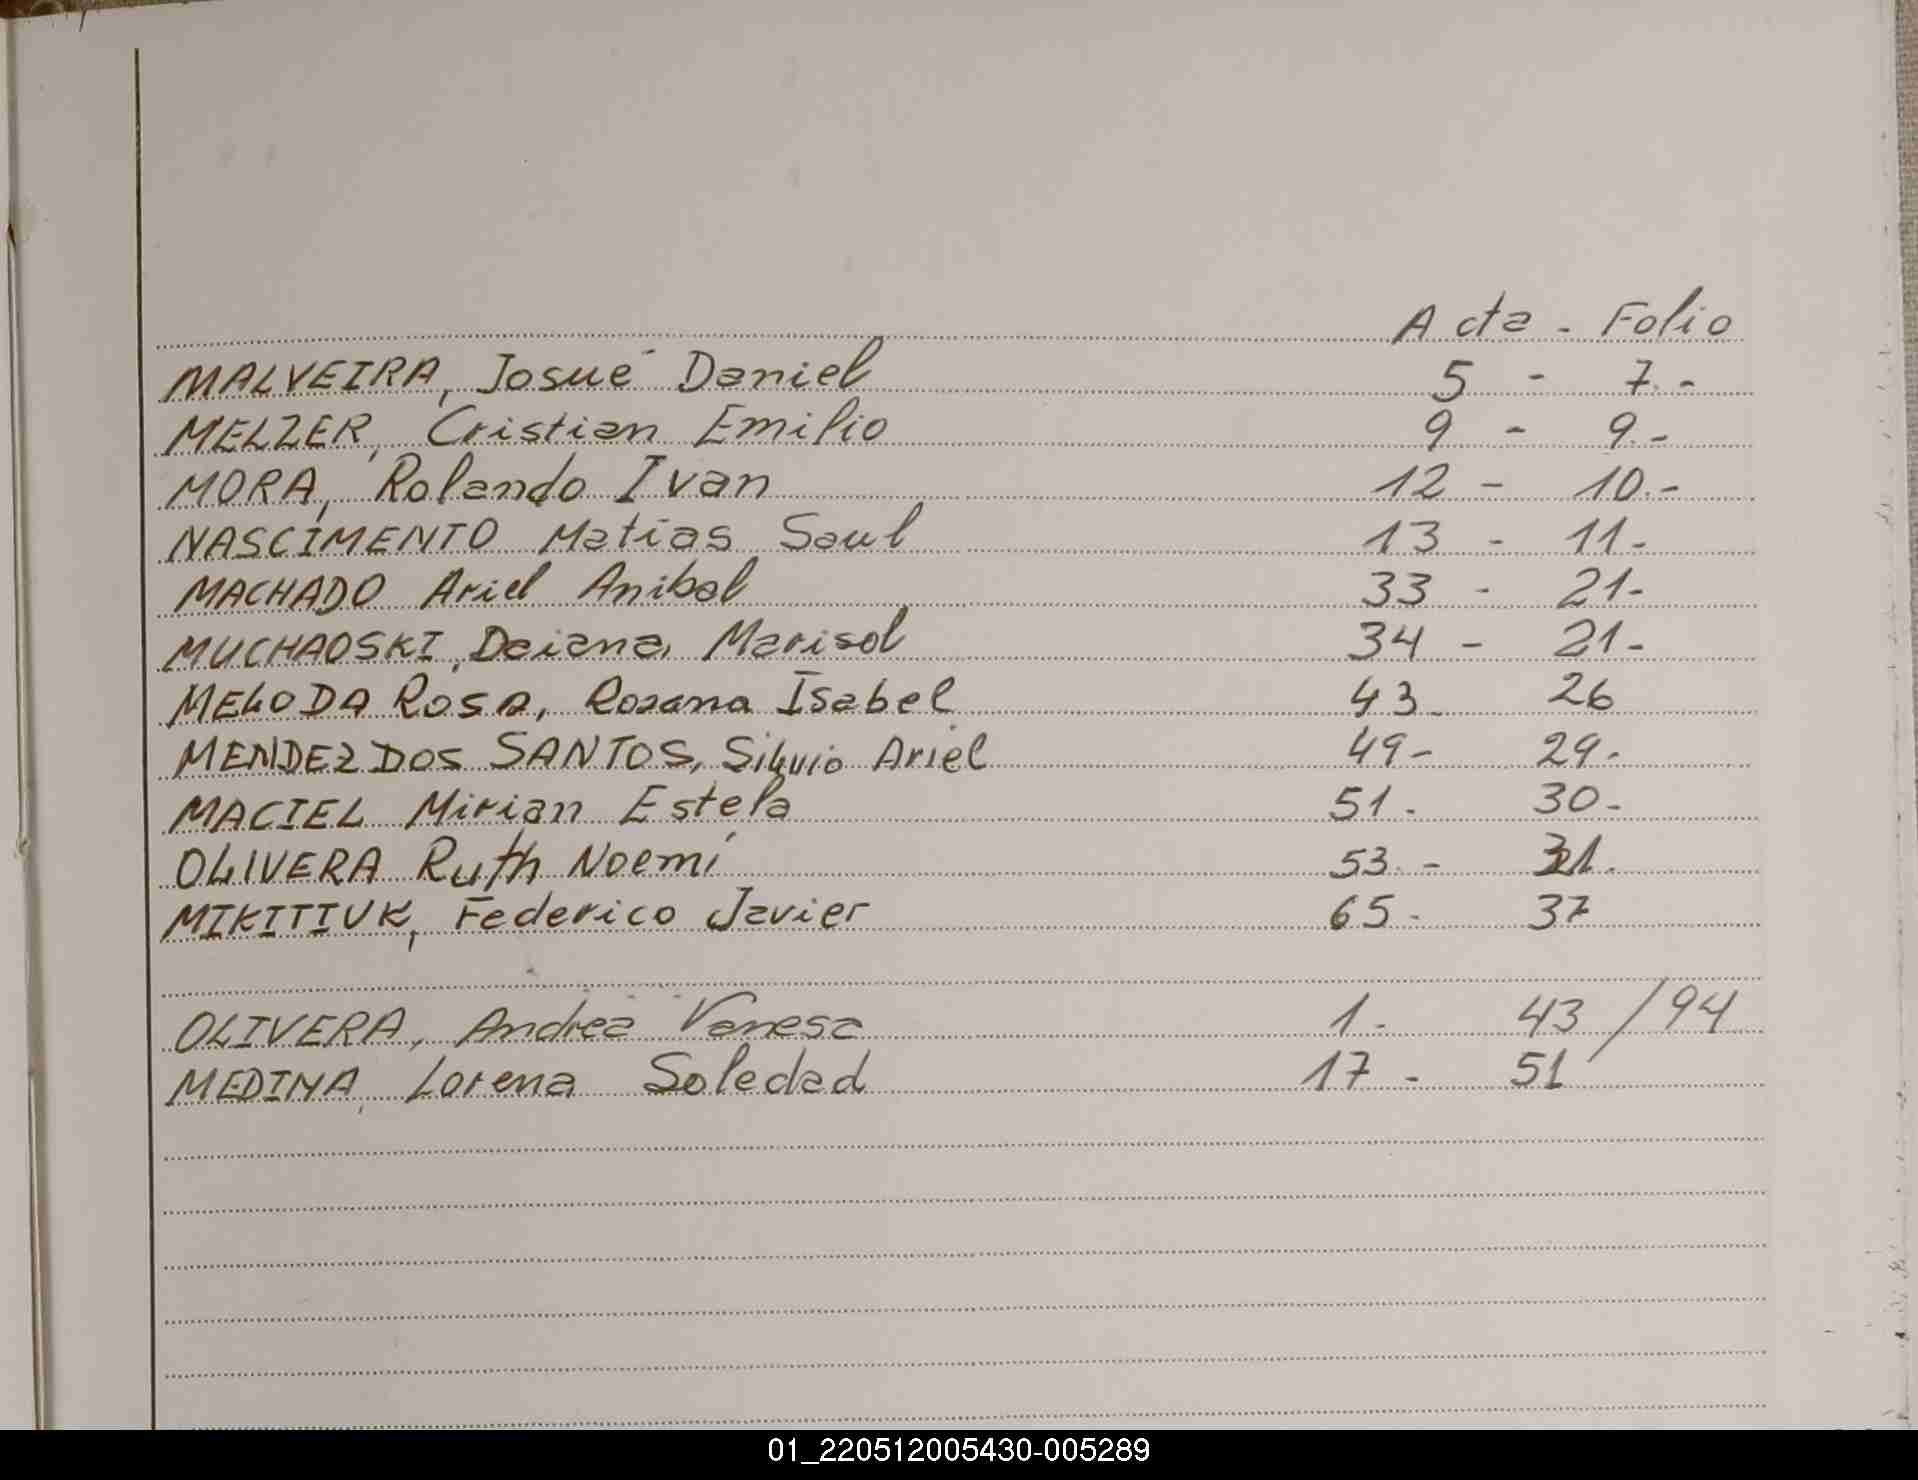 Acta - Folio
MALVEIRA, Josué Daniel 5 - 7.-
MELZER, Cristian Emilio 9 - 9.-
MORA, Rolando Ivan 12 - 10.-
NASCIMENTO Matías Saul 13 - 11.-
MACHADO Ariel Anibal 33 - 21-
MUCHAOSKI, Daiana, Marisol 34 - 21-
MELODA ROSA, Roxana Isabel 43- 26
MENDEZ DOS SANTOS, Silvio Ariel 49- 29-
MACIEL Mirian Estela 51- 30-
OLIVERA Ruth Noemí 53.- 31.
MIKITIUK, Federico Javier 65- 37
OLIVERA, Andrea Vanesa 1- 43/94
MEDINA, Lorena Soledad 17 - 51
01_220512005430-005289